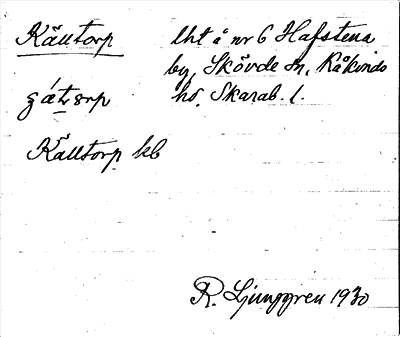 Källtorp
lht å nr 6 Hafstena
by, Skövde sn, Kåkinds
hd. Skarab. l.
Källtorp kb
R. Ljunggren 1930